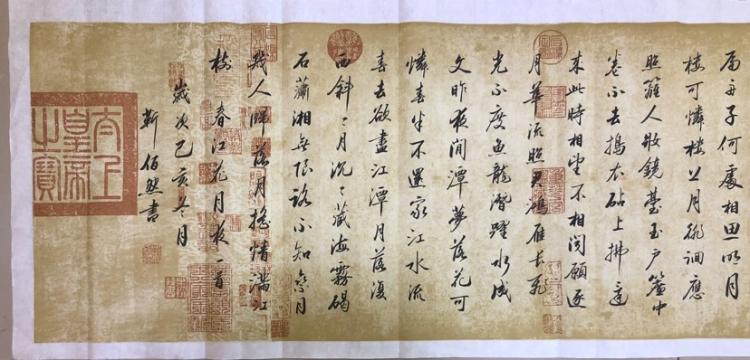 扁舟子何處相思明月
樓可憐樓上月徘徊應
照離人妝鏡臺玉戶簾中
卷不去搗衣砧上拂還
來此時相望不相聞願逐
月華流照君鴻雁長飛
光不度魚龍潛躍水成
文昨夜閒潭夢落花可
憐春半不還家江水流
春去欲盡江潭月落復
西斜〻月沉〻藏海霧碣
石瀟湘無限路不知乘月
幾人歸落月搖情滿江
樹 春江花月夜一首
歲次己亥冬月
靳佰書
太上皇帝之寶